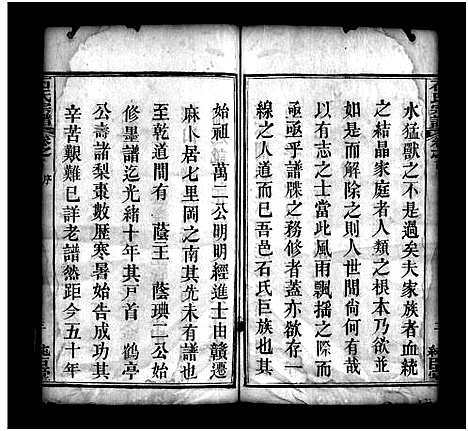 水猛獸之不是過矣夫家族者血統
之結晶家庭者人類之根本乃欲並
如是而解除之則人世間尙何有哉
以有志之士當此風雨飄搖之際而
亟亟乎譜牒之務修者蓋亦欲存一
線之人道而已吾邑石氏巨族也其
始祖 萬二公明明經進士由贛遷
麻卜居七里岡之南其先未有譜也
至乾道間有 蔭王 蔭璵二公始
修墨譜迄光緒十年其戸首 鶴亭
公壽諸梨棗數歷寒暑始告成功其
辛苦艱難已詳老譜然距今五十年
石氏宗譜 卷之 序